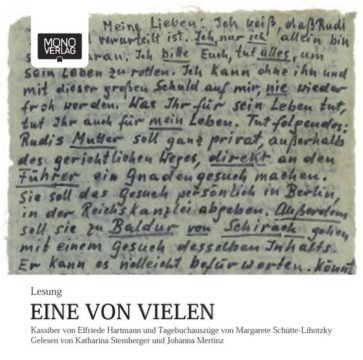 MONO
VERLAG
Meine Lieben! Ich weiß, daß Rudi
verurteilt ist. Ich, nur ich! allein bin
daran. Ich bitte Euch, tut alles, um
sein Leben zu retten. Ich kann ohne ihn und
mit dieser großen Schuld auf mir, nie wieder
froh werden. Was Ihr für sein Leben tut,
tut Ihr auch für mein Leben. Tut folgendes:
Rudis Mutter soll ganz privat, außerhalb
des gerichtlichen Weges, direkt an den
Führer ein Gnadengesuch machen.
Sie soll das Gesuch persönlich in Berlin,
in der Reichskanzlei abgeben. Außerdem
soll sie zu Baldur von Schirach gehen
mit einem Gesuch desselben Inhalts.
Er kann es vielleicht befürworten. Könnt
Lesung
EINE VON VIELEN
Kassiber von Elfriede Hartmann und Tagebuchauszüge von Margarete Schütte-Lihotzky
Gelesen von Katharina Stemberger und Johanna Mertinz